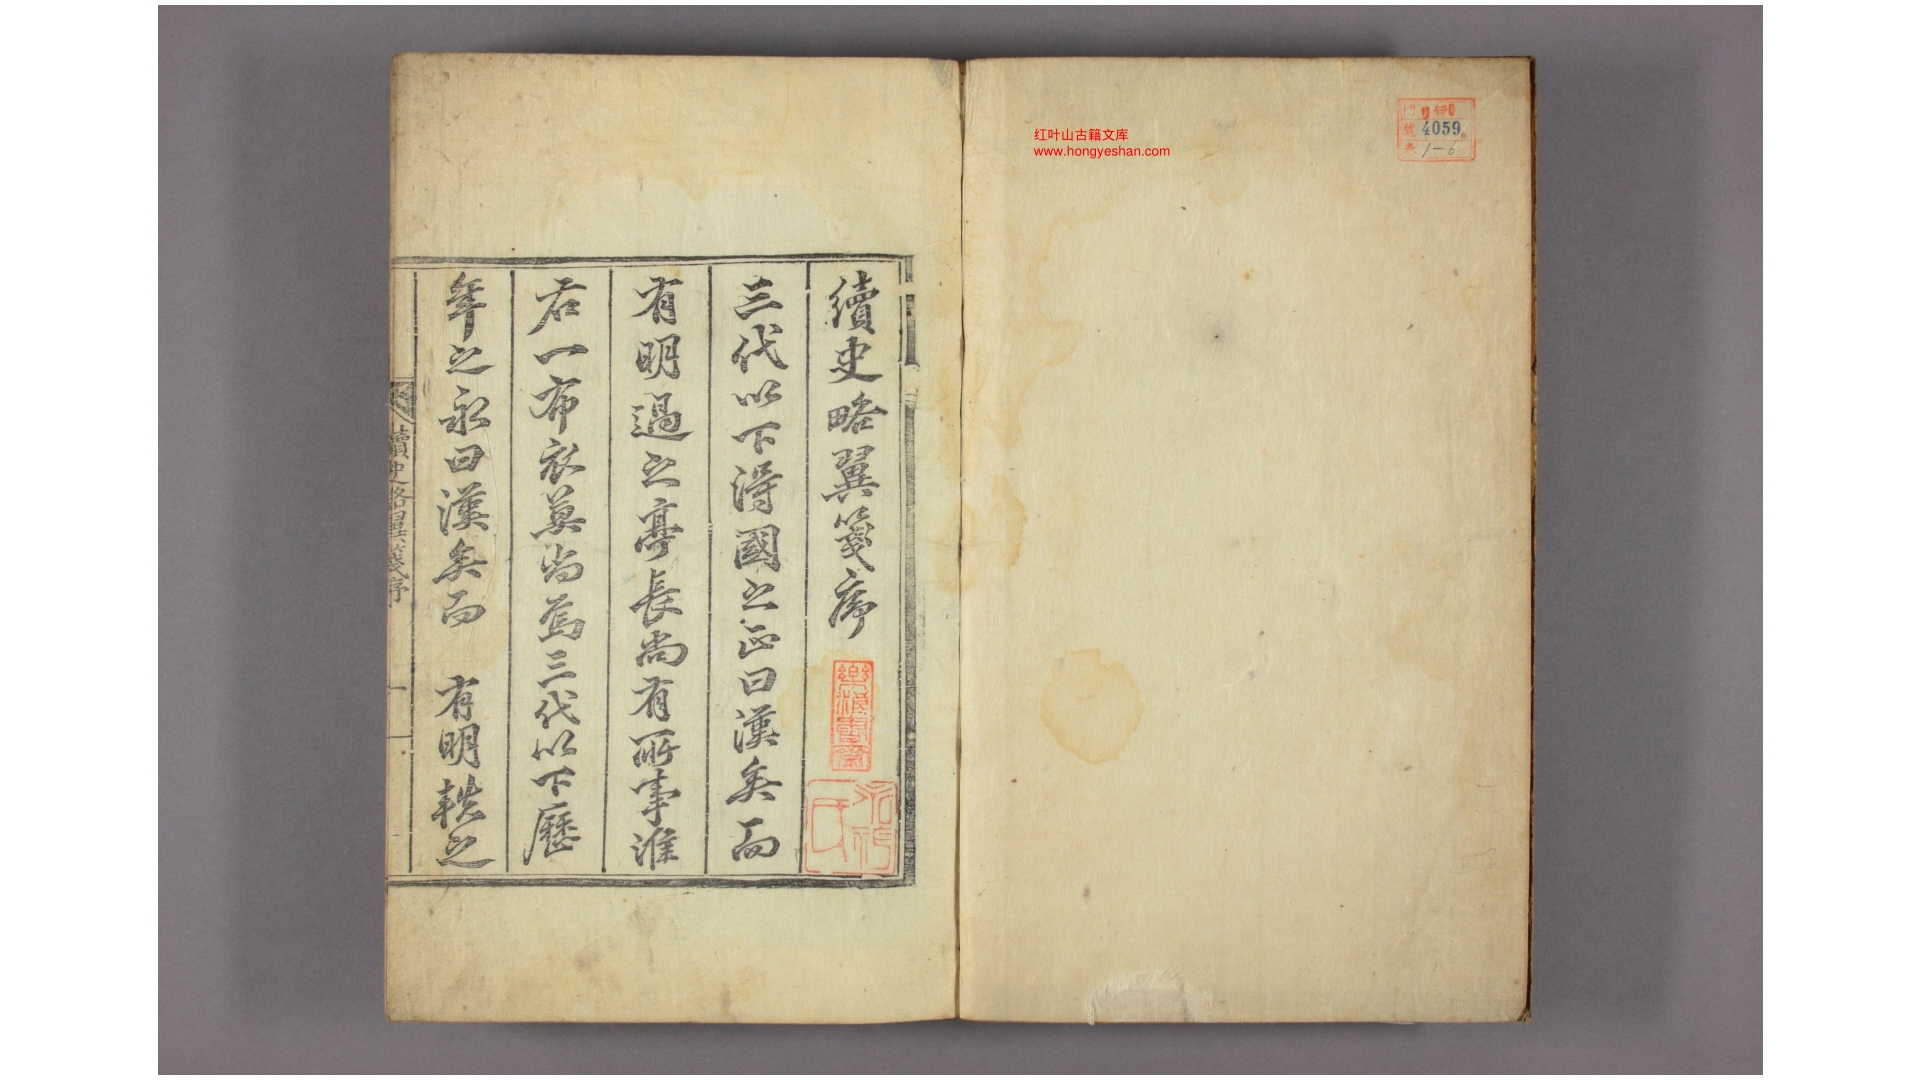 红叶山古籍文库
www.hongyeshan.com
4059
1-6
續史略翼箋序
三代以下得國之正曰漢矣而
有明過之亭長尚有所事淮
右一布衣莫尚焉三代以下歷
年之永曰漢矣而 有明軼之
續史略翼箋序